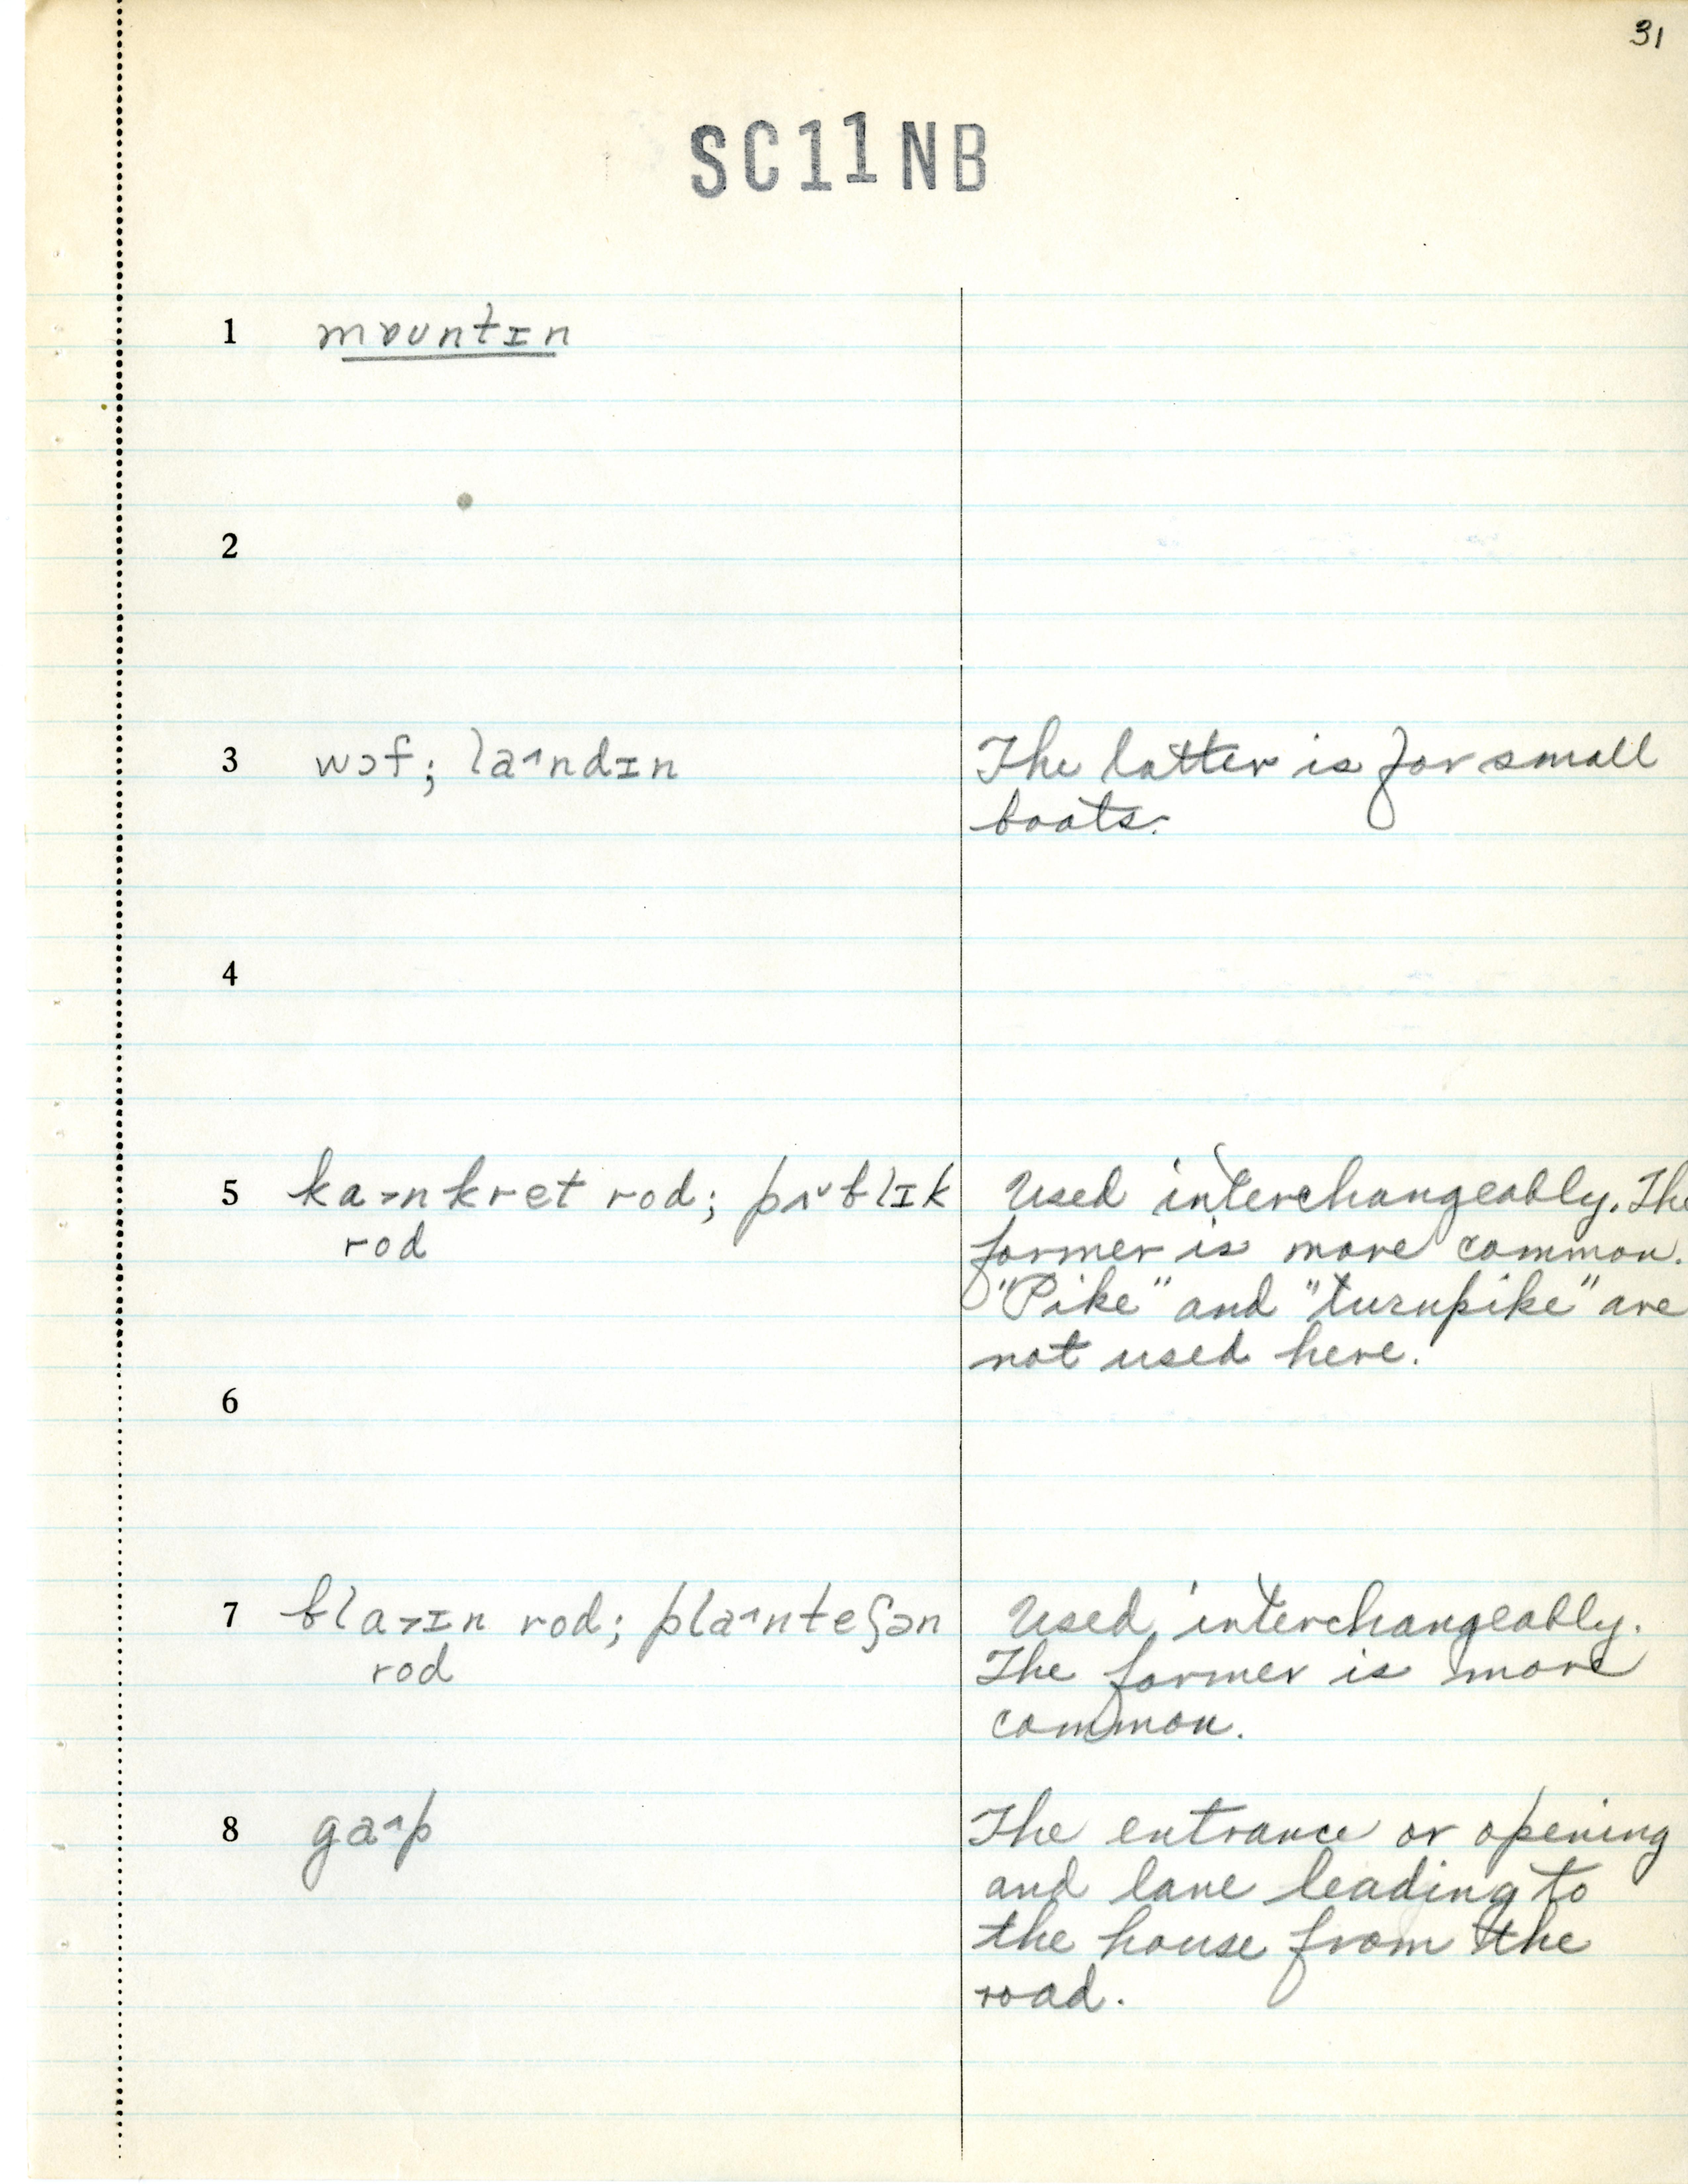 31
SC11NB
1 mɒuntɪn
2
3 wɔf; la˄ndɪn The latter is for small
boats.
4
5 ka˃nkret rod; pʌ˅blɪk Used interchangeably. The
rod former is more common.
"Pike" and "turnpike" are
not used here.
6
7 bla˃ɪn rod; pla˄nteʃən Used interchangeably.
rod The former is more
common.
8 ga˄p The entrance or opening
and lane leading to
the house from the
road.